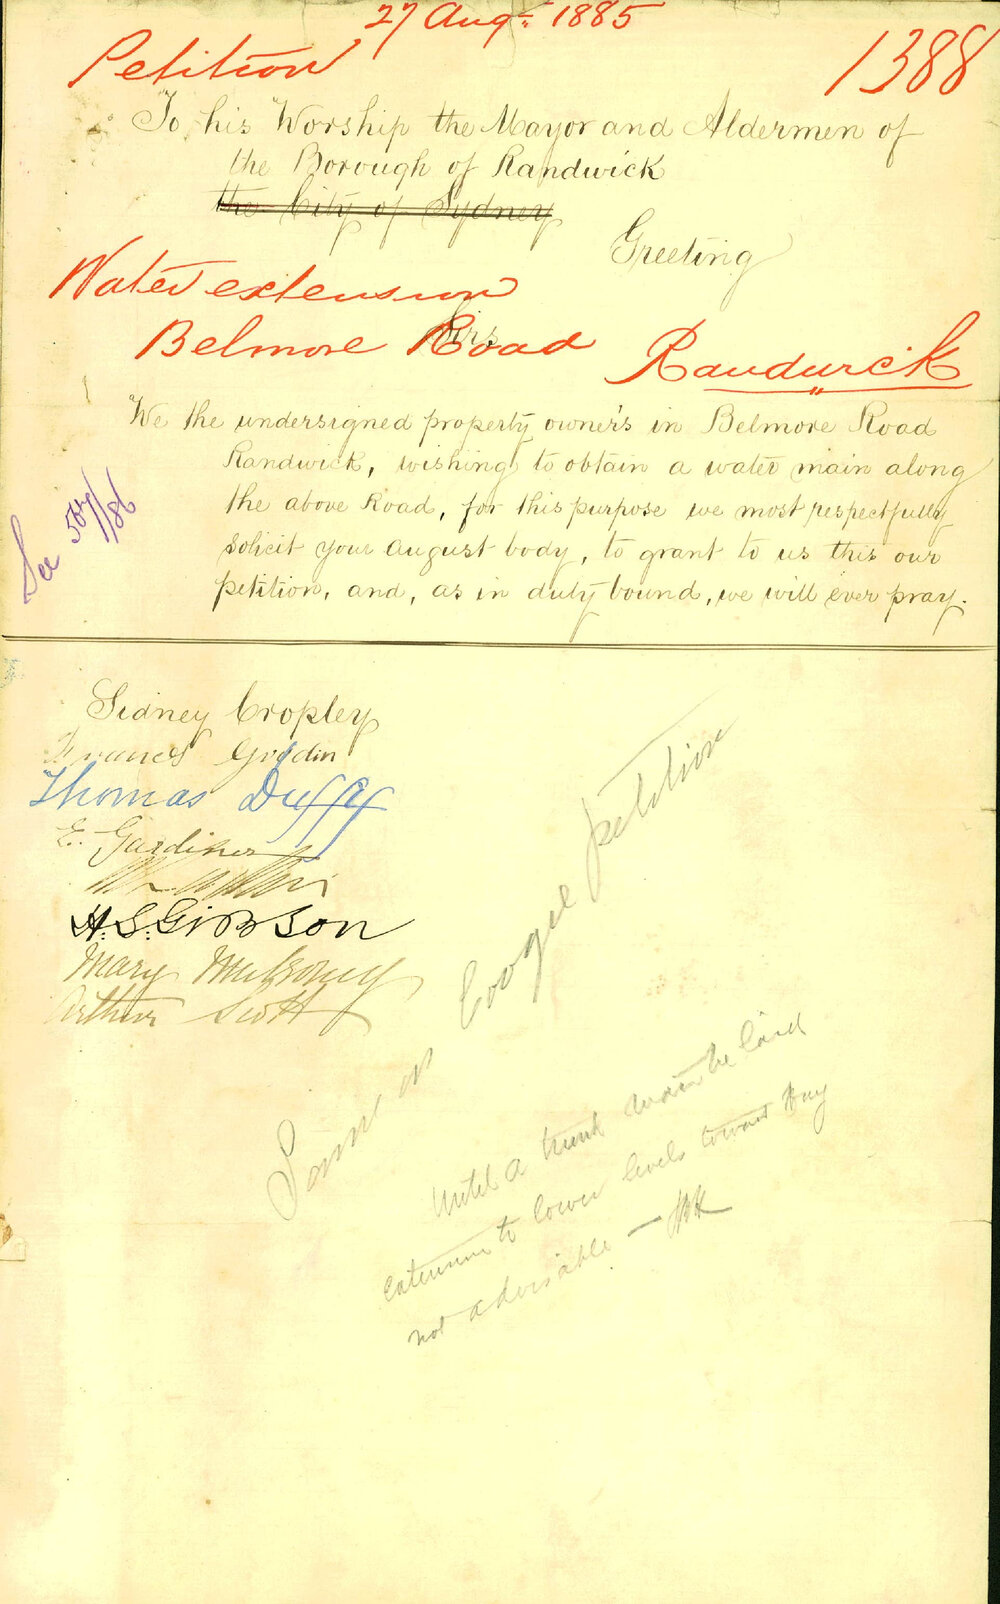 27 Augt. 1885
Petition
1388
To his Worship the Mayor and Aldermen of
the Borough of Randwick
the City of Sydney
Greeting
Water extension
Sirs
Belmore Road Randwick
We the undersigned property owner's in Belmore Road
Randwick, wishing to obtain a water main along
the above Road, for this purpose we most respectfully
solicit your august body, to grant to us this our
petition, and, as in duty bound, we will ever pray.
See 567/86
Sidney Cropley
Francis
Thomas Duffy
E. Gardiner
H. S. GIBSON
Mary Mulroney
Arthur Scott
Same as Coogee petition
Until a trunk main be laid
extension to lower levels toward Hay
not advisable —